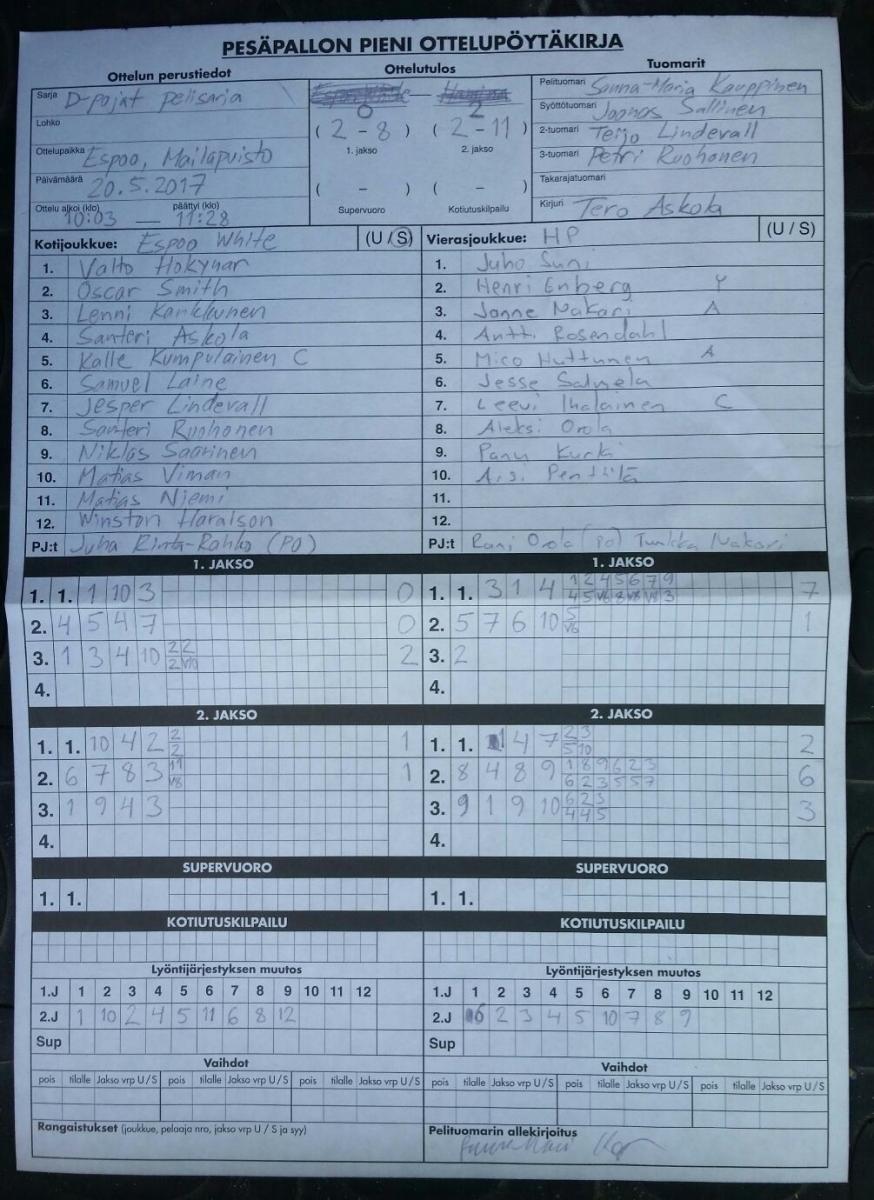 PESÄPALLON PIENI OTTELUPÖYTÄKIRJA
Ottelun perustiedot
Sarja D-pojat pelisarja
Lohko
Ottelupaikka Espoo, Mailapuisto
Päivämäärä 20.5.2017
Ottelu alkoi (klo) päättyi (klo)
10:03 — 11:28
Ottelutulos
0 — 2
( 2 - 8 ) ( 2 - 11 )
1. jakso 2. jakso
( - ) ( - )
Supervuoro Kotiutuskilpailu
Tuomarit
Pelituomari Sanna-Maria Kauppinen
Syöttötuomari Joonas Sallinen
2-tuomari Teijo Lindevall
3-tuomari Petri Ruohonen
Takarajatuomari
Kirjuri Tero Askola
Kotijoukkue: Espoo White (U / S)
1. Valto Hokynar
2. Oscar Smith
3. Lenni Karkkunen
4. Santeri Askola
5. Kalle Kumpulainen C
6. Samuel Laine
7. Jesper Lindevall
8. Santeri Ruohonen
9. Niklas Saarinen
10. Matias Viman
11. Matias Niemi
12. Winston Haralson
PJ:t Juha Rinta-Rahko (PO)
Vierasjoukkue: HP (U / S)
1. Juho Suni
2. Henri Enberg Y
3. Janne Nakari A
4. Antti Rosendahl
5. Mico Huttunen A
6. Jesse Salmela
7. Leevi Ihalainen C
8. Aleksi Orola
9. Panu Kurki
10. Penttilä
11.
12.
PJ:t Rami Orola (PO) Tuukka Nakari
1. JAKSO
1. 1. 1 10 3 0
2. 4 5 4 7 0
3. 1 3 4 10 2 2 2
2 V10
4.
1. JAKSO
1. 1. 3 1 4 1 2 4 5 6 7 9 7
4 5 V6 8 V8 V8 3
2. 5 7 6 10 5 1
V6
3. 2
4.
2. JAKSO
1. 1. 10 4 2 2 1
2
2. 6 7 8 3 11 1
V8
3. 1 9 4 3
4.
2. JAKSO
1. 1. 1 4 7 2 3 2
5 10
2. 8 4 8 9 1 8 9 6 2 3 6
6 2 3 5 5 7
3. 9 1 9 10 6 2 3 3
4 4 5
4.
SUPERVUORO
1. 1.
SUPERVUORO
1. 1.
KOTIUTUSKILPAILU
KOTIUTUSKILPAILU
Lyöntijärjestyksen muutos
1.J 1 2 3 4 5 6 7 8 9 10 11 12
2.J 1 10 2 4 5 11 6 8 12
Sup
Lyöntijärjestyksen muutos
1.J 1 2 3 4 5 6 7 8 9 10 11 12
2.J 6 2 3 4 5 10 7 8 9
Sup
Vaihdot
pois tilalle Jakso vrp U / S pois tilalle Jakso vrp U / S pois tilalle Jakso vrp U / S
Vaihdot
pois tilalle Jakso vrp U / S pois tilalle Jakso vrp U / S pois tilalle Jakso vrp U / S
Rangaistukset (joukkue, pelaaja nro, jakso vrp U / S ja syy)
Pelituomarin allekirjoitus